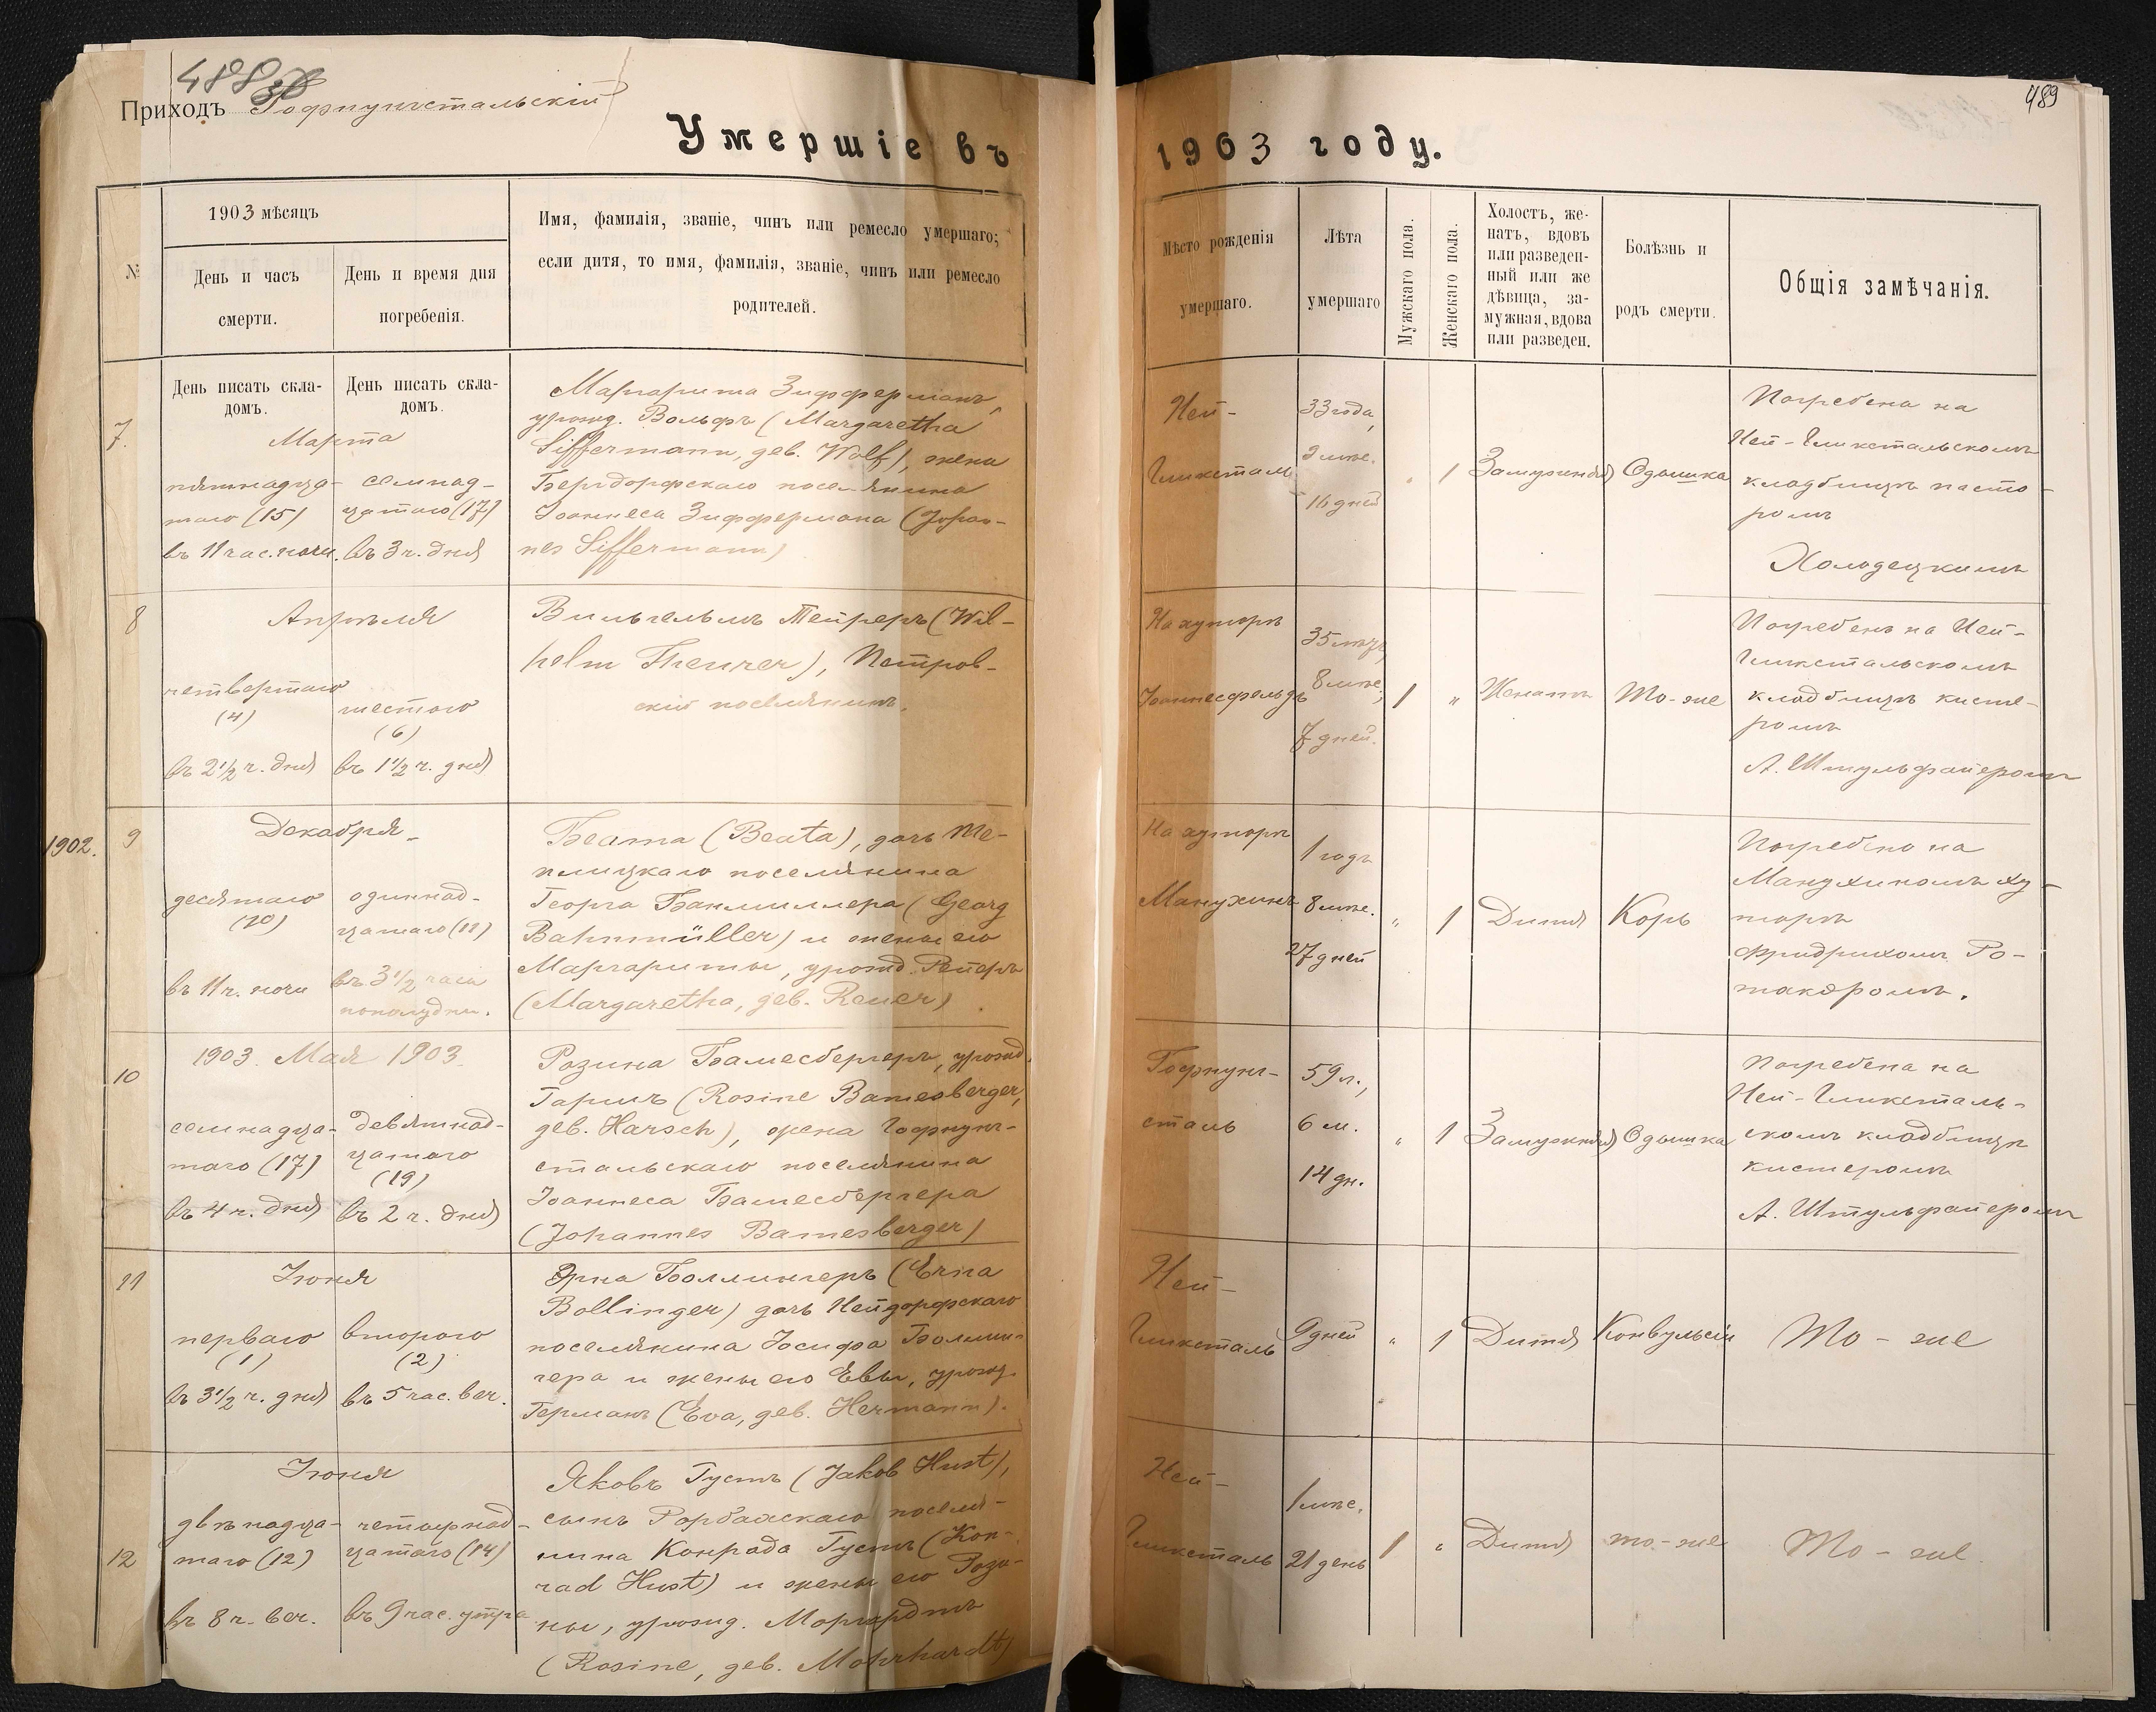 488
Приходъ Гофнунгстальскій
Умершіе въ
№
1903 мѣсяцъ
День и часъ
смерти.
День и время дня
погребенія.
Имя, фамилія, званіе, чинъ или ремесло умершаго;
если дитя, то имя, фамилія, званіе, чинъ или ремесло
родителей.
День писать скла-
домъ.
День писать скла-
домъ.
7.
Марта
пятнадца-
таго (15)
въ 11 час. ночи.
семнад-
цатаго (17)
въ 3 ч. дня
Маргарита Зифферманъ,
урожд. Вольфъ (Margaretha
Siffermann, geb. Wolf), жена
Бергдорфскаго поселянина
Іоаннеса Зиффермана (Johan-
nes Siffermann)
8
Апрѣля
четвертаго
(4)
въ 2 1/2 ч. дня
шестого
(6)
въ 1 1/2 ч. дня
Вильгельмъ Тейреръ (Wil-
helm Theurer), Петров-
скій поселянинъ.
1902.
9
Декабря
десятаго
(10)
въ 11 ч. ночи
одиннад-
цатаго (11)
въ 3 1/2 часа
пополудни.
Беата (Beata), дочь Те-
плицкаго поселянина
Георга Банмиллера (Georg
Bahnmüller) и жены его
Маргариты, урожд. Рейеръ
(Margaretha, geb. Reuer)
10
1903. Мая 1903.
семнадца-
таго (17)
въ 4 ч. дня
девятнад-
цатаго
(19)
въ 2 ч. дня
Розина Бамесбергеръ, урожд.
Гаршъ (Rosine Bamesberger,
geb. Harsch), жена Гофнунг-
стальскаго поселянина
Іоаннеса Бамесбергера
(Johannes Bamesberger)
11
Іюня
перваго
(1)
въ 3 1/2 ч. дня
второго
(2)
въ 5 час. веч.
Эрна Боллингеръ (Erna
Bollinger) дочь Нейдорфскаго
поселянина Іосифа Боллин-
гера и жены его Евы, урожд.
Германъ (Eva, geb. Hermann).
12
Іюня
двѣнадца-
таго (12)
въ 8 ч. веч.
четырнад-
цатаго (14)
въ 9 час. утра
Яковъ Густъ (Jakob Hust),
сынъ Рорбахскаго поселя-
нина Конрада Густъ (Kon-
rad Hust) и жены его Рози-
ны, урожд. Моргардтъ
(Rosine, geb. Mohrhardt)
489
1903 году.
Мѣсто рожденія
умершаго.
Лѣта
умершаго
Мужскаго пола.
Женскаго пола.
Холостъ, же-
натъ, вдовъ
или разведен-
ный или же
дѣвица, за-
мужная, вдова
или разведен.
Болѣзнь и
родъ смерти.
Общія замѣчанія.
Ней-
Гликсталь
33 года,
3 мѣс.
16 дней
"
1
Замужняя
Одышка
Погребена на
Ней-Гликстальскомъ
кладбищѣ пасто-
ромъ
Холодецкимъ
На хуторѣ
Іоаннесфельдъ
35 лѣтъ,
8 мѣс.,
7 дней.
1
"
Женатъ
То-же
Погребенъ на Ней-
Гликстальскомъ
кладбищѣ кисте-
ромъ
А. Штульфайеромъ
На хуторѣ
Манухинъ
1 годъ
8 мѣс.
27 дней
"
1
Дитя
Корь
Погребена на
Манухиномъ ху-
торѣ
Фридрихомъ Ро-
такеромъ.
Гофнунг-
сталь
59 л.,
6 м.
14 дн.
"
1
Замужняя
Одышка
Погребена на
Ней-Гликсталь-
скомъ кладбищѣ
кистеромъ
А. Штульфайеромъ
Ней-
Гликсталь
9 дней
"
1
Дитя
Конвульсіи
То-же
Ней-
Гликсталь
1 мѣс.
21 день
1
"
Дитя
то-же
То-же